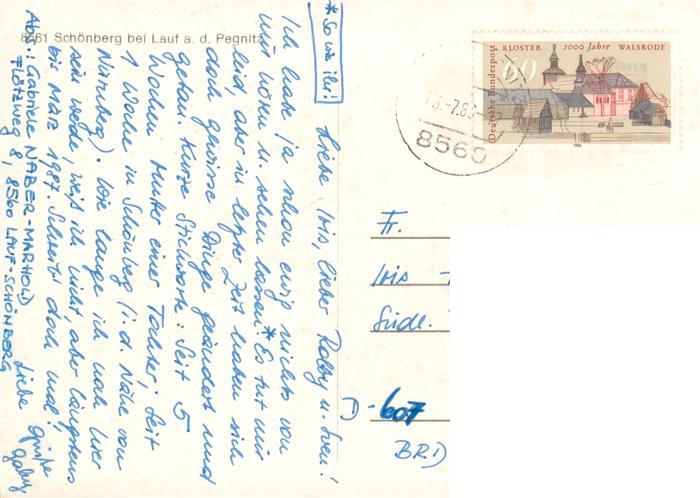 8561 Schönberg bei Lauf a. d. Pegnitz
* So wie ihr!
Liebe Iris, lieber Ralby u. Sven!
Ich lasse ja schon ewig nichts von
mir hören u. sehen lassen.* Es tut mir
leid, aber in letzter Zeit haben sich
doch gewisse Dinge geändert und
getan. Kurze Stichworte: Seit 5
Wochen Mutter einer Tochter, seit
1 Woche in Schönberg (i. d. Nähe von
Nürnberg). Wie lange ich noch hier
sein werde, weiß ich nicht, aber längstens
bis März 1987. Schreibt doch mal!
Liebe Grüße
Gaby
Abs.: Gabriele NABER-MARHOLD
Flötzweg 8, 8560 LAUF-SCHÖNBERG
Deutsche Bundespost
60
KLOSTER 1000 Jahre WALSRODE
1986
-7.86
8560
Fr.
Iris
Südl.
D-607
BRD